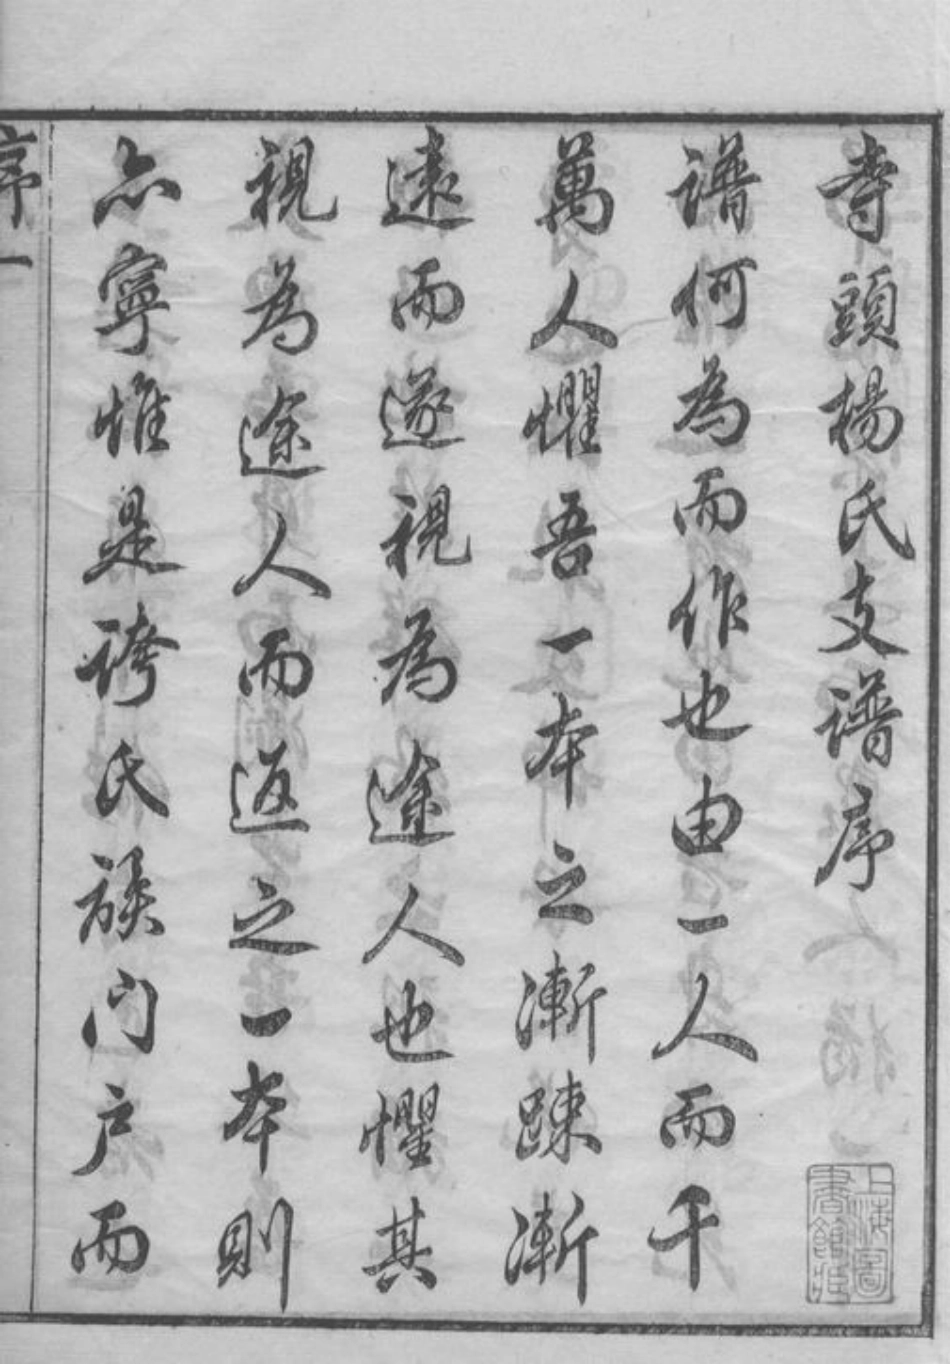 寺頭楊氏支譜序
譜何為而作也由一人而千
萬人懼吾一本之漸踈漸
遠而遂視為途人也懼其
視為途人而返之一本則
亦寧惟是誇氏族门户而
序一
上海圖書館藏